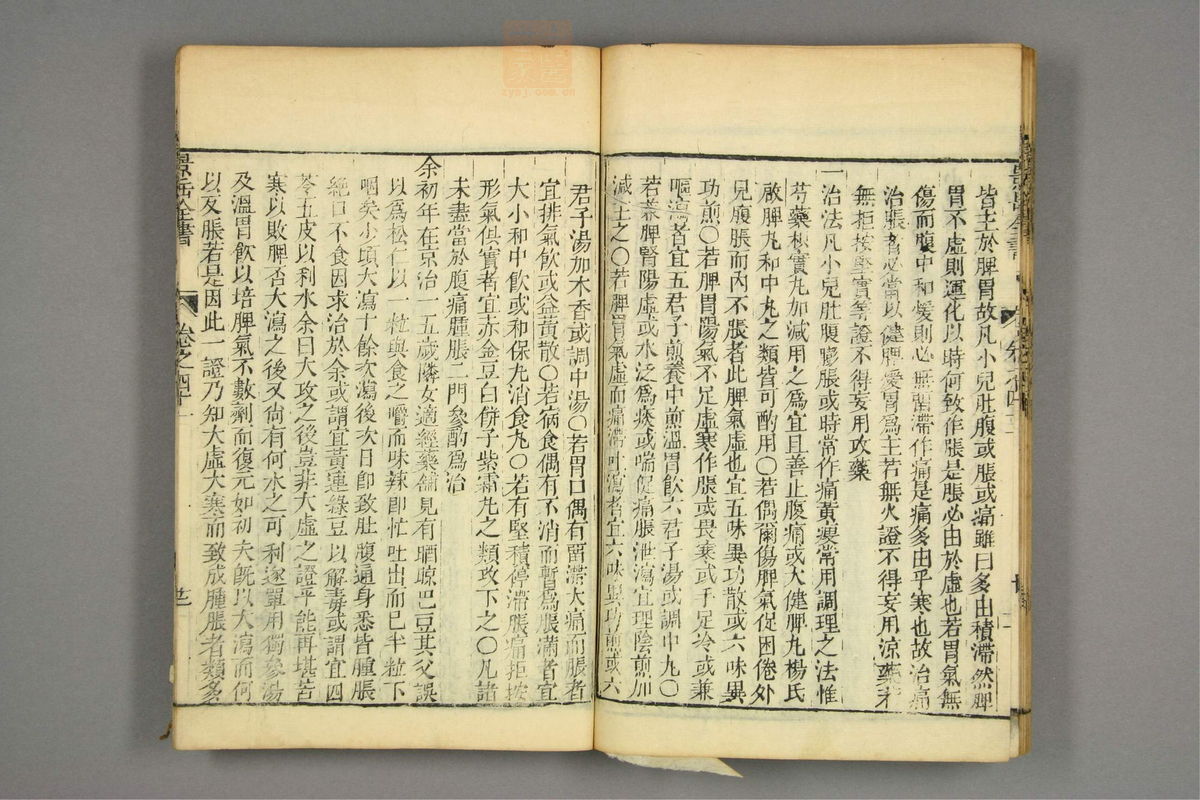 皆主於脾胃故凡小兒肚腹或脹或痛雖曰多由積滯然脾
胃不虛則運化以時何致作脹是脹必由於虛也若胃氣無
傷而腹中和煖則必無留滯作痛是痛多由乎寒也故治痛
治脹者必當以健脾煖胃為主若無火證不得妄用涼藥若
無拒按堅實等證不得妄用攻藥
一治法凡小兒肚腹膨脹或時常作痛黃瘦常用調理之法惟
芍藥枳實丸加減用之為宜且善止腹痛或大健脾丸楊氏
啟脾丸和中丸之類皆可酌用〇若偶爾傷脾氣促困倦外
見腹脹而內不脹者此脾氣虛也宜五味異功散或六味異
功煎〇若脾胃陽氣不足虛寒作脹或畏寒或手足冷或兼
嘔瀉者宜五君子煎養中煎溫胃飲六君子湯或調中丸〇
若兼脾腎陽虛或水泛為痰或喘促痛脹泄瀉宜理陰煎加
減主之〇若脾胃氣虛而痛滯吐瀉者宜六味異功煎或六
君子湯加木香或調中湯〇若胃口偶有留滯大痛而脹者
宜排氣飲或益黃散〇若病食偶有不消而暫為脹滿者宜
大小和中飲或和保丸消食丸〇若有堅積停滯脹痛拒按
形氣俱實者宜赤金豆白餅子紫霜丸之類攻下之〇凡諸
未盡當於腹痛腫脹二門參酌為治
余初年在京治一五歲隣女適經藥舖見有晒晾巴豆其父誤
以為松仁以一粒與食之嚼而味辣即忙吐出而已半粒下
咽矣少頃大瀉十餘次瀉後次日即致肚腹通身悉皆腫脹
絕口不食因求治於余或謂宜黃連綠豆以解毒或謂宜四
苓五皮以利水余曰大攻之後豈非大虛之證乎能再堪苦
寒以敗脾否大瀉之後又尚有何水之可利遂單用獨參湯
及溫胃飲以培脾氣不數劑而復元如初夫既以大瀉而何
以反脹若是因此一證乃知大虛大寒而致成腫脹者類多
景岳全書
卷之四十一
zysj.com.cn